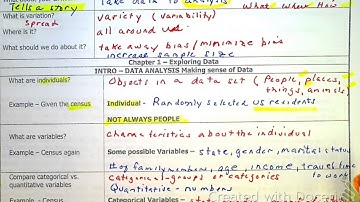 Tell a story Take Data to Analysis What Where How
What is variation? variety (variability)
Spread
Where is it? all around us
What should we do about it? take away bias/minimize bias
increase sample size
Chapter 1 – Exploring Data
INTRO – DATA ANALYSIS Making sense of Data
What are individuals? Objects in a data set (People, places,
things, animals)
Example – Given the census Individual - Randomly selected US residents
NOT ALWAYS PEOPLE
What are variables? characteristics about the individual
Example – Census again Some possible Variables – state, gender, marital status
# of family members, age, income, travel time
to work
Compare categorical vs. Categorical - groups or categories
quantitative variables Quantitative - numbers
Example - Census Categorical Variables –